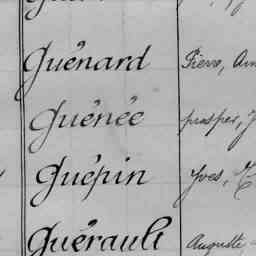 Guénard Pierre,
Guénée prosper,
Guépin Yves,
Guérault Auguste,